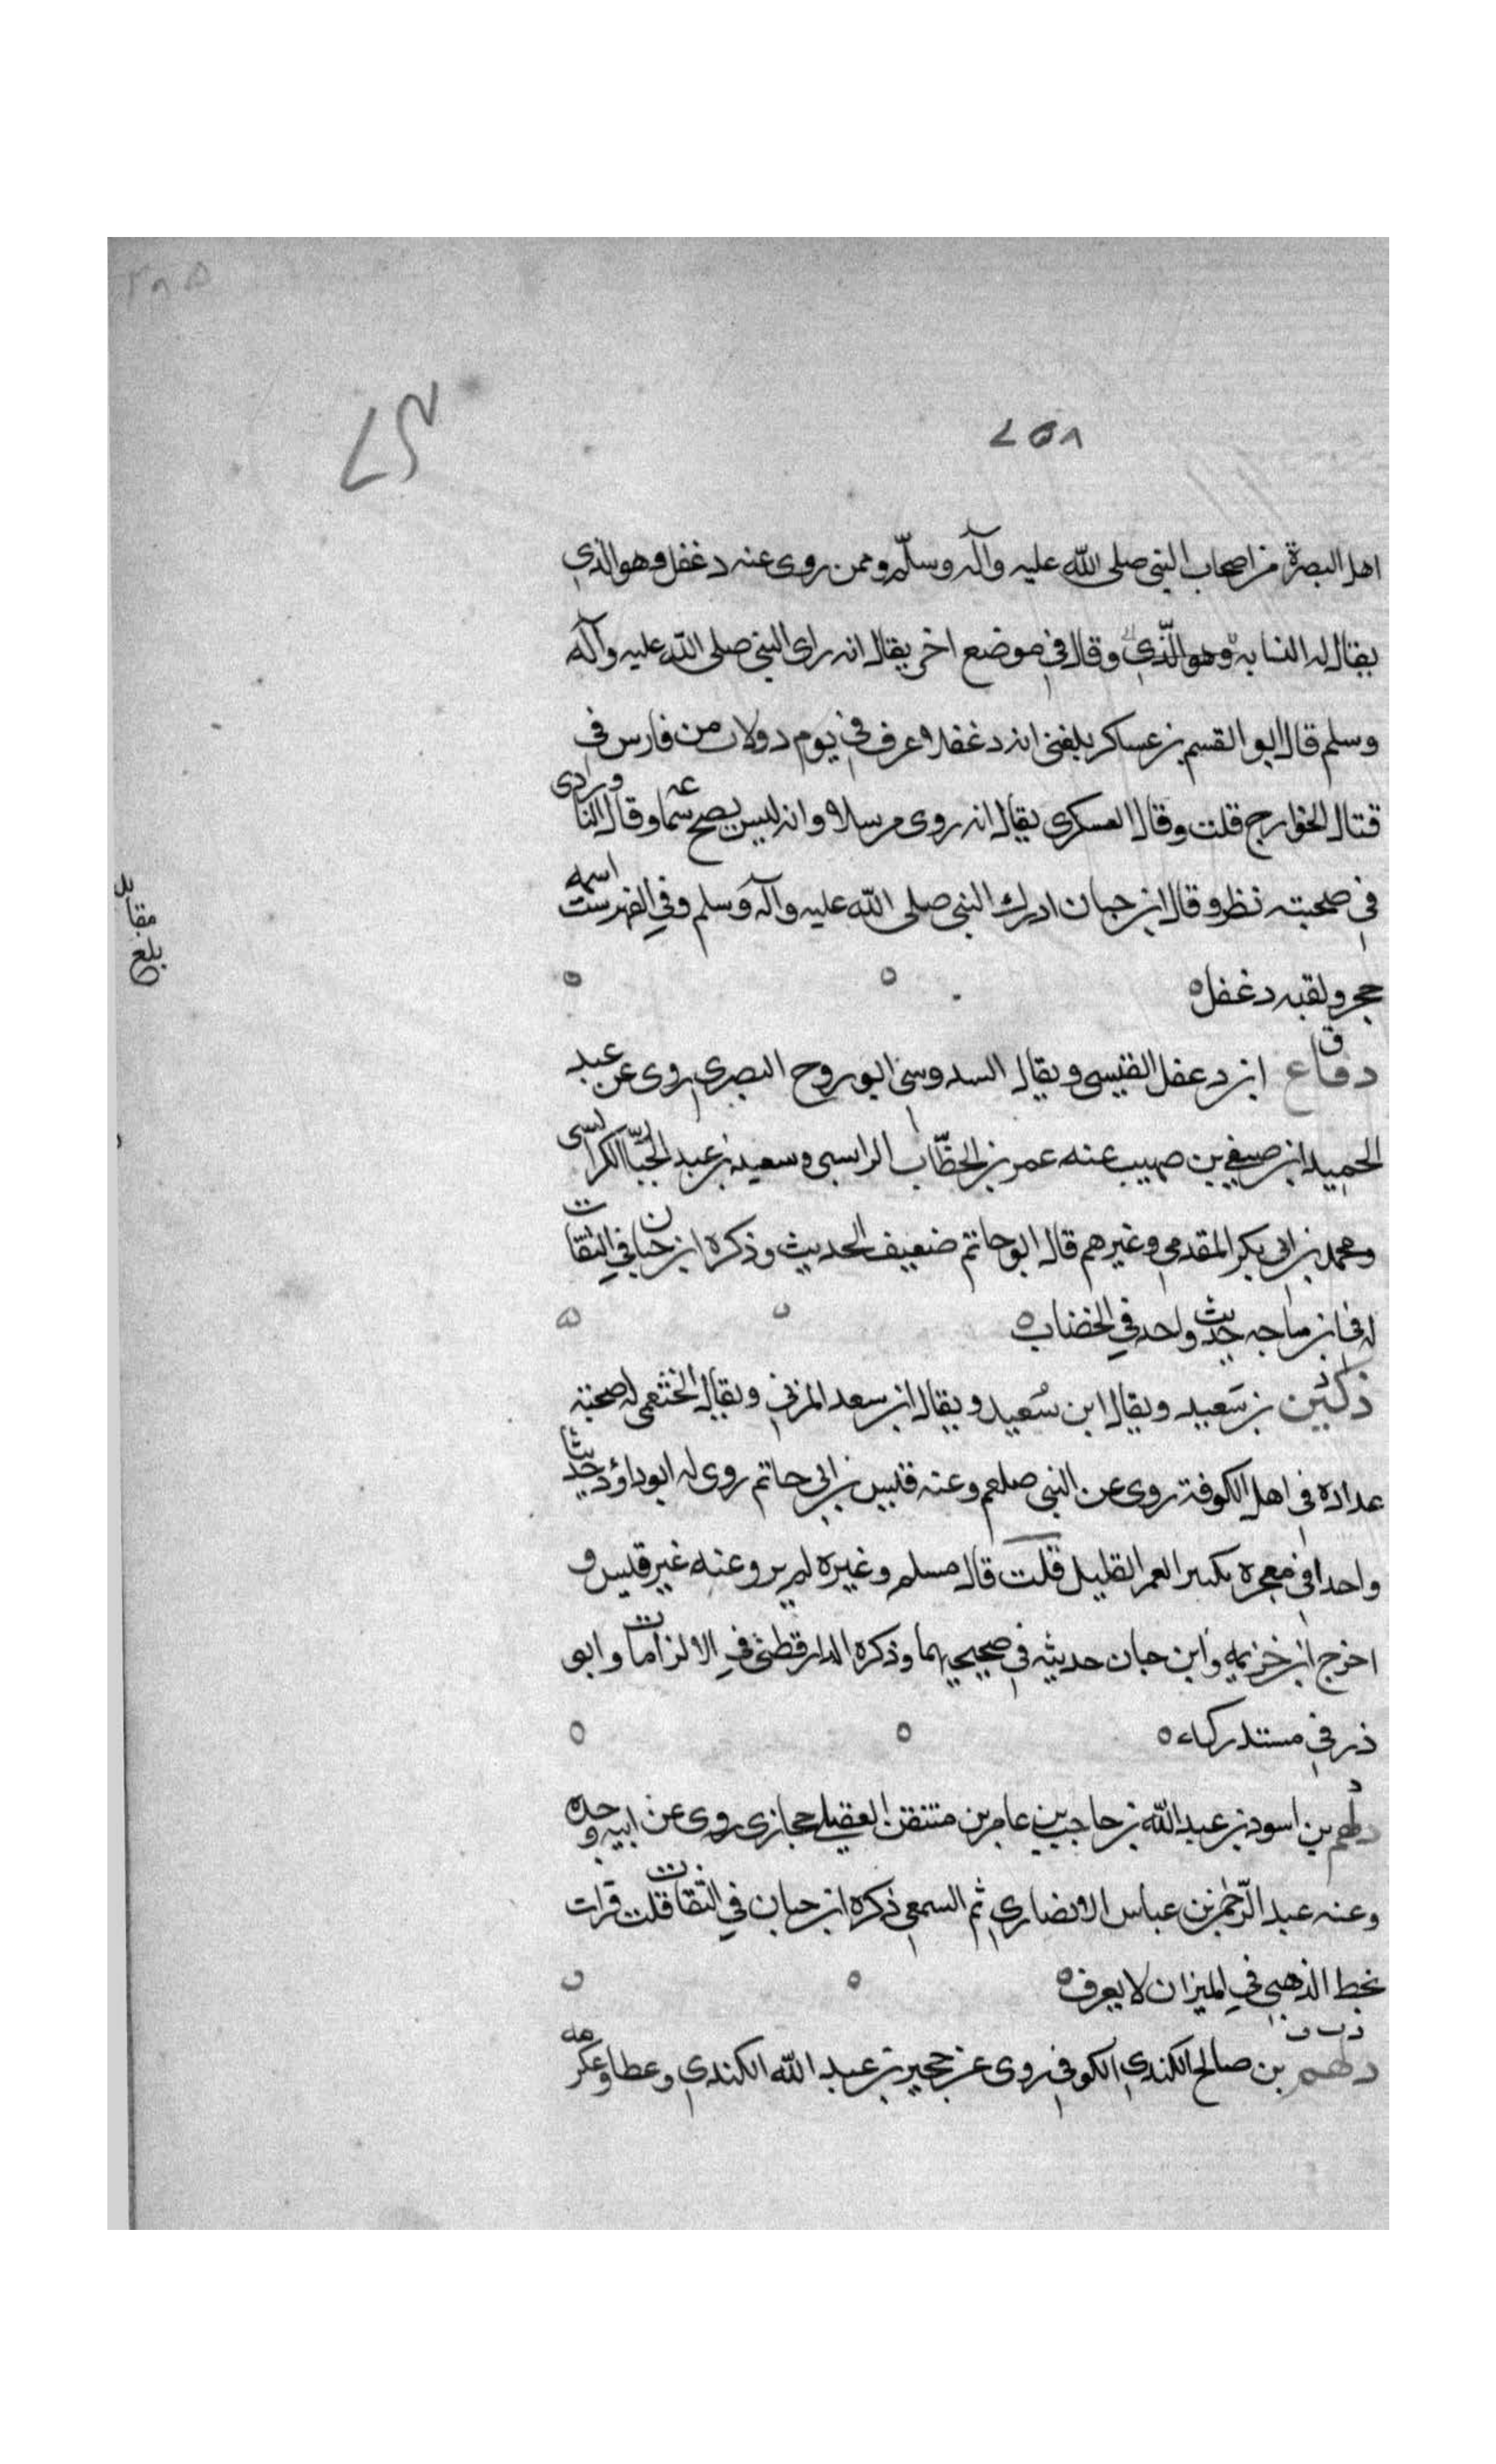 ٢٥٨
اهل البصرة من اصحاب النبى صلى الله عليه وآله وسلّم وممن روى عنه دغفل وهو الذي
يقال له النسابة وهو الّذي وقال في موضع اخر يقال انه راى النبي صلى الله عليه وآله
وسلم قال ابو القسم بن عساكر بلغنى ان دغفلا غرق في يوم دولاب من فارس في
قتال الخوارج قلت وقال العسكرى يقال انه روى مرسلا وانه ليس يصح سماعه وقال الناوردى
في صحبته نظر وقال ابن حبان ادرك النبي صلى الله عليه وآله وسلم وفي الفهرست اسمه
حجر ولقبه دغفل ه
ق
دفاع ابن دغفل القيسى ويقال السدوسى ابو روح البصري روى عن عبد
الحميد ابن صيفي بن صهيب عنه عمر بن الخطّاب الراسبي وسعيد بن عبد الجبّار الكرابيسى
ومحمد بن ابى بكر المقدمي وغيرهم قال ابو حاتم ضعيف الحديث وذكره ابن حبان في الثقات
له في ابن ماجه حديث واحد في الخضاب ه
دكين بن سَعيد ويقال ابن سُعيد ويقال ابن سعد المزني ويقال الخثعمى له صحبته
عداده في اهل الكوفة روى عن النبى صلعم وعنه قيس بن ابي حاتم روى له ابو داؤد حديثا
واحدا في معجزه بكسر العمر القليل قلت قال مسلم وغيره لم يرو عنه غير قيس و
اخرج ابن خزيمه وابن حبان حديثه في صحيحيهما وذكره الدارقطنى في الالزامات وابو
ذر في مستدركه ه
د
دلهم بن اسود بن عبد الله بن حاجب بن عامر بن منتفق العقيلي حجازى روى عن ابيه وجده
وعنه عبد الرّحمن بن عباس الانصاري ثم السمعي ذكره ابن حبان في الثقات قلت قرات
بخط الذهبي في الميزان لا يعرف ه
د ت ق
دلهم بن صالح الكندي الكوفي روى عن حجير بن عبد الله الكندي وعطا وعكرمه
بلغ مقابله